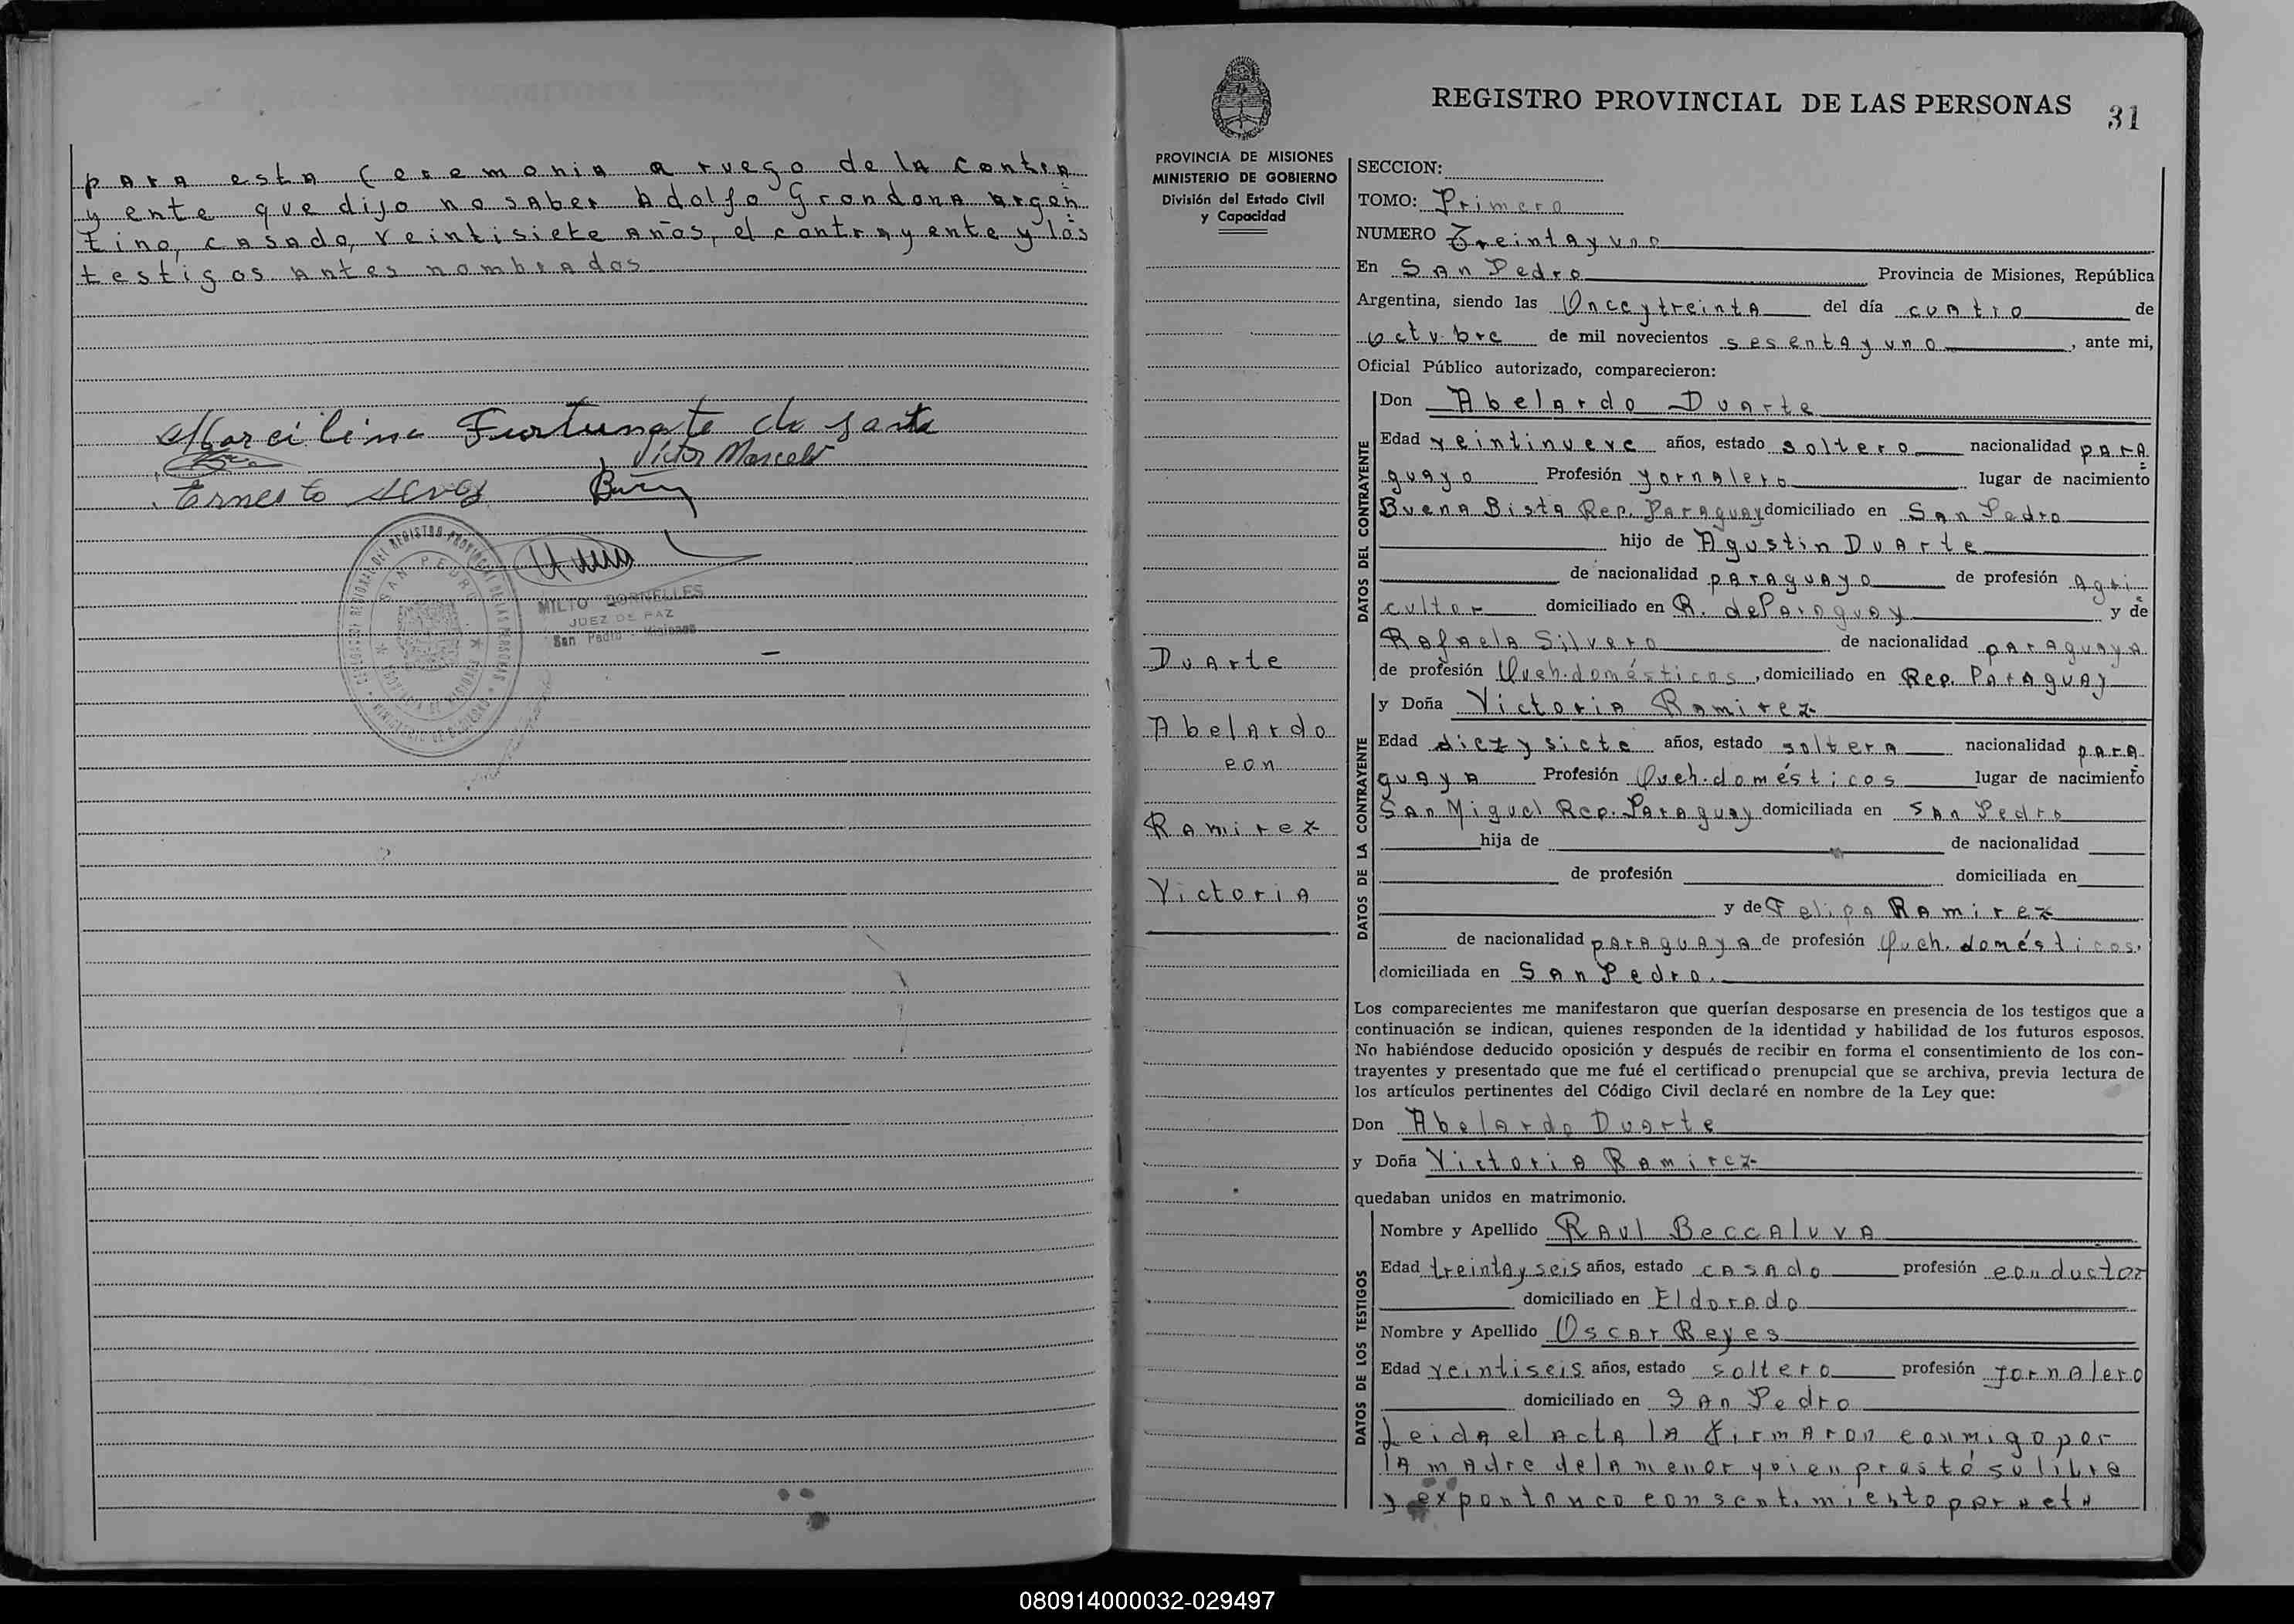 para esta ceremonia a ruego de la contra
yente que dijo no saber Adolfo Grondona argen
tino, casado, veintisiete años, el contrayente y los
testigos antes nombrados
Victor Marcelo
Ernesto
SAN PEDRO
MILTO DORNELLES
JUEZ DE PAZ
San Pedro - Misiones
PROVINCIA DE MISIONES
MINISTERIO DE GOBIERNO
División del Estado Civil
y Capacidad
Duarte
Abelardo
con
Ramirez
Victoria
REGISTRO PROVINCIAL DE LAS PERSONAS 31
SECCION:
TOMO: Primero
NUMERO Treinta y uno
En San Pedro Provincia de Misiones, República
Argentina, siendo las Once y treinta del día cuatro de
octubre de mil novecientos sesenta y uno, ante mi,
Oficial Público autorizado, comparecieron:
DATOS DEL CONTRAYENTE
Don Abelardo Duarte
Edad veintinueve años, estado soltero nacionalidad para
guayo Profesión jornalero lugar de nacimiento
Buena Bista Rep. Paraguay domiciliado en San Pedro
hijo de Agustin Duarte
de nacionalidad paraguayo de profesión Agri
cultor domiciliado en R. de Paraguay y de
Rafaela Silvero de nacionalidad paraguaya
de profesión Queh. domésticos, domiciliado en Rep. Paraguay
DATOS DE LA CONTRAYENTE
y Doña Victoria Ramirez
Edad diez y siete años, estado soltera nacionalidad para
guaya Profesión Queh. domésticos lugar de nacimiento
San Miguel Rep. Paraguay domiciliada en San Pedro
hija de de nacionalidad
de profesión domiciliada en
y de Felipa Ramirez
de nacionalidad paraguaya de profesión Queh. domésticos.
domiciliada en San Pedro.
Los comparecientes me manifestaron que querían desposarse en presencia de los testigos que a
continuación se indican, quienes responden de la identidad y habilidad de los futuros esposos.
No habiéndose deducido oposición y después de recibir en forma el consentimiento de los con-
trayentes y presentado que me fué el certificado prenupcial que se archiva, previa lectura de
los artículos pertinentes del Código Civil declaré en nombre de la Ley que:
Don Abelardo Duarte
y Doña Victoria Ramirez
quedaban unidos en matrimonio.
DATOS DE LOS TESTIGOS
Nombre y Apellido Raul Beccaluva
Edad treinta y seis años, estado casado profesión conductor
domiciliado en Eldorado
Nombre y Apellido Oscar Reyes
Edad veintiseis años, estado soltero profesión Jornalero
domiciliado en San Pedro
Leida el acta la firmaron conmigo por
la madre de la menor quien prestó su libre
y expontaneo consentimiento por acta
080914000032-029497